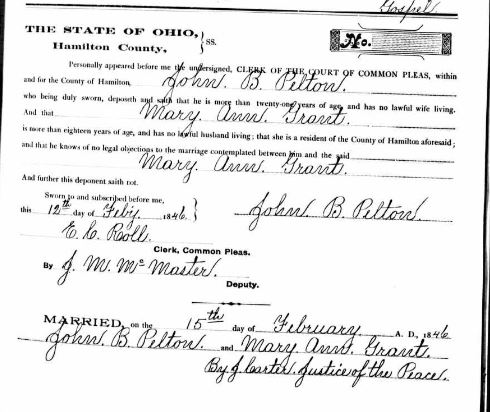 Gospel
THE STATE OF OHIO, } SS.
Hamilton County,
No.
Personally appeared before me the undersigned, CLERK OF THE COURT OF COMMON PLEAS, within
and for the County of Hamilton, John B. Pelton.
who being duly sworn, deposeth and saith that he is more than twenty-one years of age, and has no lawful wife living.
And that Mary Ann Grant.
is more than eighteen years of age, and has no lawful husband living; that she is a resident of the County of Hamilton aforesaid;
and that he knows of no legal objections to the marriage contemplated between him and the said
Mary Ann Grant.
And further this deponent saith not.
Sworn to and subscribed before me,
this 12th day of Feb'y. 1846 } John B. Pelton.
E. C. Roll.
Clerk, Common Pleas.
By J. M. McMaster.
Deputy.
MARRIED, on the 15th day of February A. D., 1846
John B. Pelton. and Mary Ann Grant.
By J. Carter. Justice of the Peace.